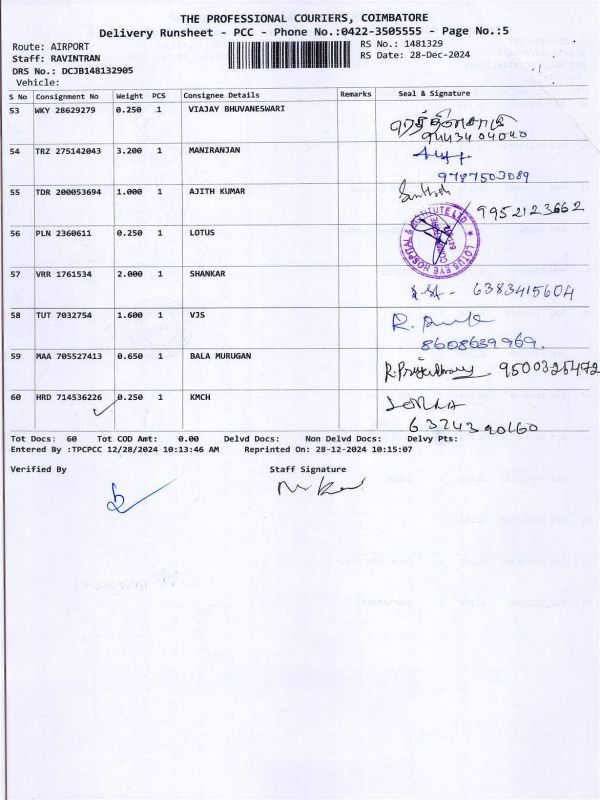 THE PROFESSIONAL COURIERS, COIMBATORE
Delivery Runsheet - PCC - Phone No.:0422-3505555 - Page No.:5
Route: AIRPORT RS No.: 1481329
Staff: RAVINTRAN RS Date: 28-Dec-2024
DRS No.: DCJB148132905
Vehicle:
S No Consignment No Weight PCS Consignee Details Remarks Seal & Signature
53 WKY 28629279 0.250 1 VIAJAY BHUVANESWARI
9443404040
54 TRZ 275142043 3.200 1 MANIRANJAN
9787503089
55 TDR 200053694 1.000 1 AJITH KUMAR
Santhosh 9952123662
56 PLN 2360611 0.250 1 LOTUS
LOTUS EYE HOSPITAL & INSTITUTE LTD.
57 VRR 1761534 2.000 1 SHANKAR
6383415604
58 TUT 7032754 1.600 1 VJS
8608639969.
59 MAA 705527413 0.650 1 BALA MURUGAN
R. Priyadharsy 9500325472
60 HRD 714536226 0.250 1 KMCH
6374390160
Tot Docs: 60 Tot COD Amt: 0.00 Delvd Docs: Non Delvd Docs: Delvy Pts:
Entered By :TPCPCC 12/28/2024 10:13:46 AM Reprinted On: 28-12-2024 10:15:07
Verified By Staff Signature